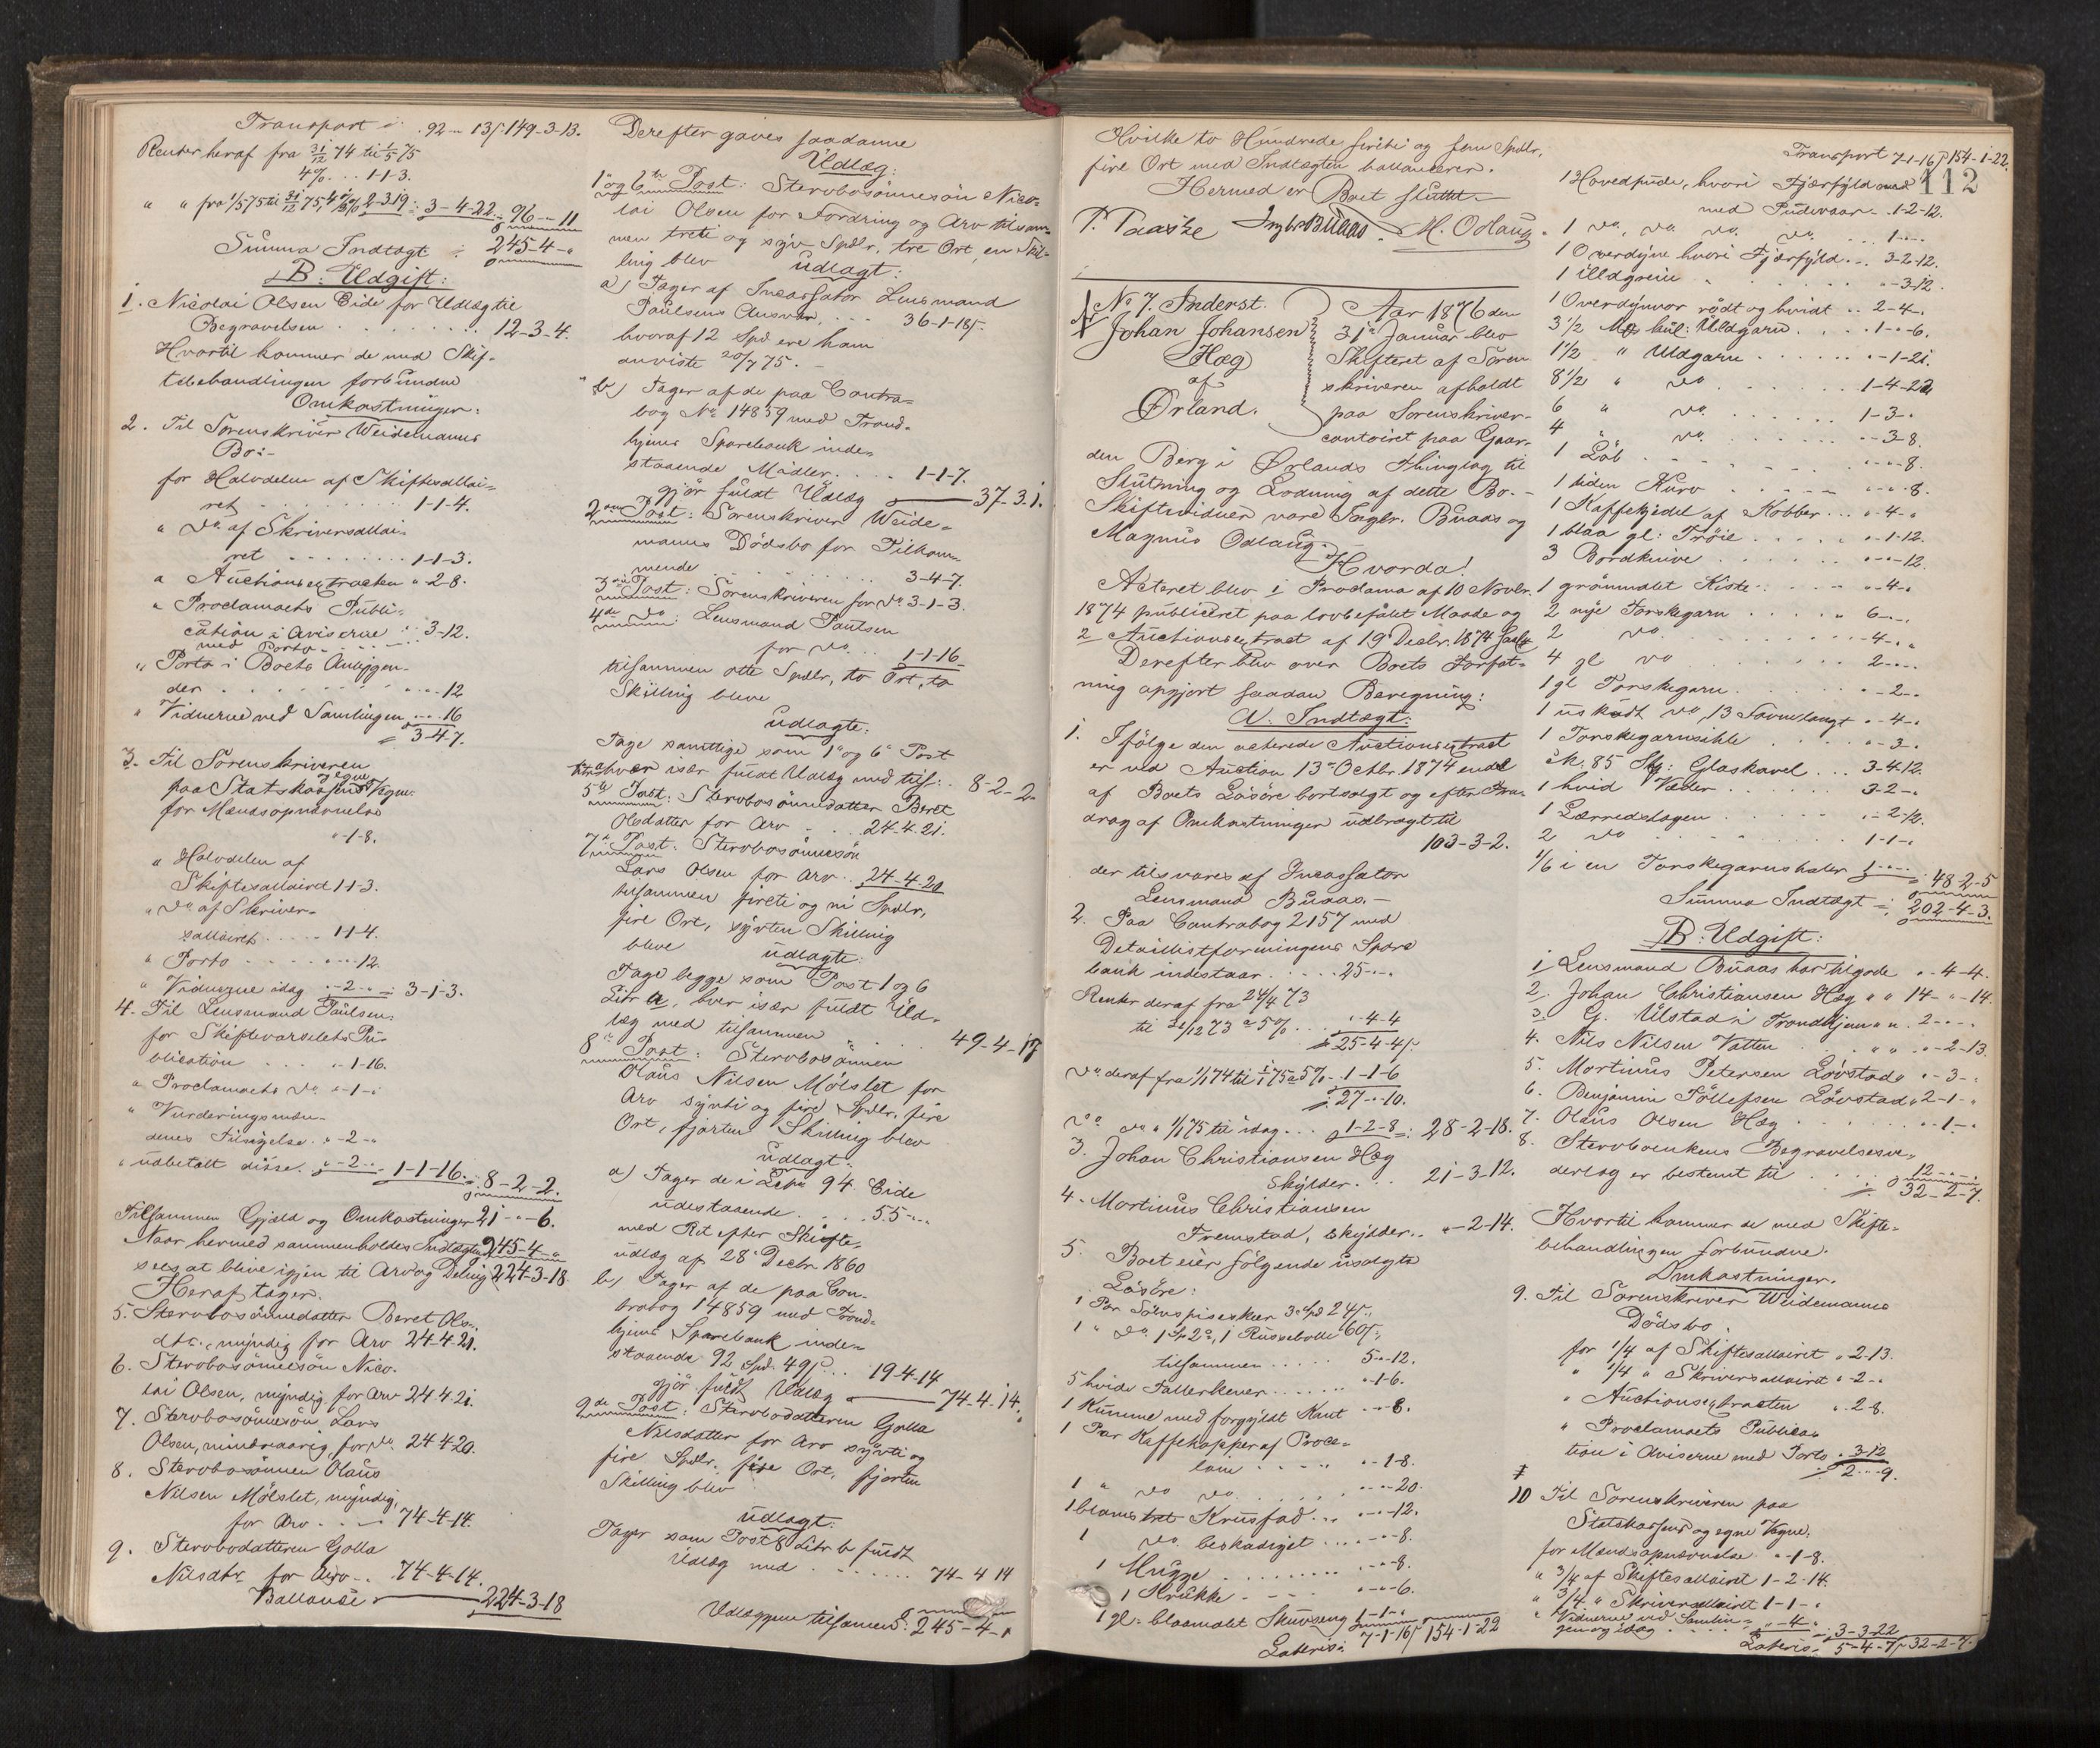 Transport . 92 - " - 13 /: 149-3-13.
Renter heraf fra 31/12 74 til 1/5 75
4% . . 1-1-3.
" " fra 1/5 75 til 31/12 75, 2-3-19 : 3-4-22 : 96 - " - 11
Summa Indtægt : 245-4-"
B. Udgift:
1. Nicolai Olsen Eide for Udlæg til
Begravelsen . . . . . . 12-3-4.
Hvortil kommer de med Skif-
tebehandlingen forbundne
Omkostninger:
2. Til Sorenskriver Weidemanns
Bo:-
for Halvdelen af Skiftesallai-
ret . . . . . . 1-1-4.
" Do af Skriversallai-
ret . . . . . . 1-1-3.
" Auctionsextracten " 2-8.
" Proclamaets Publi-
cation i Aviserne : 3-12.
med Porto -
" Porto i Boets Anliggen-
der . . . . . . " - " - 12
" Vidnerne ved Samlingen " - " - 16
3-4-7.
3. Til Sorenskriveren
paa Statskassens og egne Vegne
for Mændsopnævnelse
" - 1-8.
" Halvdelen af
Skiftesallairet 1-1-3.
" Do af Skriver-
sallairet . . . . 1-1-4.
" Porto . . . . " - " - 12.
" Vidnerne idag " - 2 - " : 3-1-3.
4. Til Lensmand Paulsen
for Skiftevarslets Pu-
blication . . . . " - 1-16.
" Proclamaets Do " - 1 - "
" Vurderingsmæn-
denes Tilsigelse . " - 2 - "
" udbetalt disse . " - 2 - " 1-1-16 : 8-2-2.
Tilsammen Gjæld og Omkostninger 21 - " - 6.
Naar hermed sammenholdes Indtægten 245-4-"
sees at blive igjen til Arv og Deling 224-3-18.
Heraf tager.
5. Stervbosønnedatter Beret Ols-
dtr., myndig for Arv 24-4-21.
6. Stervbosønnesøn Nico-
lai Olsen, myndig, for Arv 24-4-21.
7. Stervbosønnesøn Lars
Olsen, mindreaarig, for Do 24-4-20.
8. Stervbosønnen Olaus
Nilsen Mølslet, myndig,
for Arv . . . 74-4-14.
9. Stervbodatteren Golla
Nilsdtr for Arv . . 74-4-14.
Ballance 224-3-18
Derefter gaves saadanne
Udlæg:
1ste og 6te Post: Stervbosønnesøn Nico-
lai Olsen for Fordring og Arv tilsam-
men treti og syv Spdlr, tre Ort, en Skil-
ling blev udlagt:
a) Tager af Incassator Lensmand
Paulsens Ansvar . . . 36-1-18/:
hvoraf 12 Spd ere ham
anviste 20/7 75. -
b) Tager af de paa Contra-
bog No 14859 med Trond-
hjems Sparebank inde-
staaende Midler . . . 1-1-7.
gjør fuldt Udlæg 37-3-1.
2den Post: Sorenskriver Weide-
manns Dødsbo for Tilkom-
mende . . . . 3-4-7.
3die Post: Sorenskriveren for Do 3-1-3.
4de Do: Lensmand Paulsen
for Do . . 1-1-16
tilsammen otte Spdlr, to Ort, to
Skilling bleve
udlagte:
Tage samtlige som 1ste og 6te Post
Litr a hver især fuldt Udlæg med tils: 8-2-2.
5te Post: Stervbosønnedatter Beret
Olsdatter for Arv . . 24-4-21.
7de Post: Stervbosønnesøn
Lars Olsen for Arv . . 24-4-20
tilsammen firti og ni Spdlr,
fire Ort, sytten Skilling
bleve udlagte:
Tage begge som Post 1 og 6
Litr a, hver især fuldt Ud-
læg med tilsammen . . . 49-4-17
8de Post: Stervbosønnen
Olaus Nilsen Mølslet for
Arv sytti og fire Spdlr, fire
Ort, fjorten Skilling blev
udlagt:
a) Tager de i Løbnr 94 Eide
udestaaende . . . . 55 - " - "
med Ret efter Skifte-
udlæg af 28de Decbr 1860
b) Tager af de paa Con-
trabog 14859 med Trond-
hjems Sparebank inde-
staaende 92 Spd. 49 /: . . 19-4-14
gjør fuldt Udlæg 74-4-14.
9de Post: Stervbodatteren Golla
Nilsdatter for Arv sytti og
fire Spdlr. fire Ort, fjorten
Skilling blev
udlagt:
Tager som Post 8 Litr b fuldt
Udlæg med . . . . . 74-4-14
Udlæggene tilsammen : 245-4-"
Hvilke to Hundrede firti og fem Spdlr,
fire Ort med Indtægten ballancerer.
Hermed er Boet sluttet.
P. Paaske Ingbr. Buaas M. Odlaug
No 7. Inderst.
Johan Johansen
Hæg
af
Ørland.
Aar 1876 den
31te Januar blev
Skifteret af Soren-
skriveren afholdt
paa Sorenskriver-
contoiret paa Gaar-
den Berg i Ørlands Thinglag til
Slutning og Lodning af dette Bo. -
Skiftevidner vare Ingbr. Buaas og
Magnus Odlaug.
Hvorda!
Acteret blev i Proclama af 10 Novbr.
1874 publiceret paa lovbefalet Maade og
2 Auctionsextract af 19de Decbr. 1874
Derefter blev over Boets Forfat-
ning opgjort saadan Beregning:
A. Indtægt:
1. Ifølge den acterede Auctionsextract
er ved Auction 13de Octbr. 1874 endel
af Boets Løsøre bortsolgt og efter Fra-
drag af Omkostninger udbragt til
103-3-2.
der tilsvares af Incassator
Lensmand Buaas. -
2. Paa Contrabog 2157 med
Detaillistforeningens Spare
bank indestaar . . . . 25 - " - "
Renter deraf fra 24/4 73
til 31/12 73 a 5% . . . " - 4-4
25-4-4/:
Do deraf fra 1/1 74 til 1/1 75 a 5% - 1-1-6
27 - " - 10.
Do Do " 1/1 75 til idag . . . 1-2-8 : 28-2-18.
3. Johan Christiansen Hæg
skylder . . 21-3-12.
4. Martinus Christiansen
Fremstad, skylder . . " - 2-14.
5. Boet eier følgende usolgte
Løsøre:
1 Par Sølvspiseskeer 3 Spd 24 /:
1 " Do 1 Sp 2 o, 1 Russebolle 60 /:
tilsammen . . . . . 5 - " - 12.
5 hvide Tallerkener . . . . . " - 1-6.
1 Kumme med forgyldt Kant " - " - 8.
1 Par Kaffekopper af Proce-
lain . . . . . " - 1-8.
1 " Do Do . . . . . " - " - 20.
1 blomstret Krusfad . . . " - " - 12.
1 Do beskadiget . . . . " - " - 8.
1 Mugge . . . . . . . " - " - 8.
1 Krukke . . . " - " - 6.
1 gl. blaamalet Skuvseng 1-1-"
Lateris: 7-1-16 /: 154-1-22
Transport 7-1-16 /: 154-1-22.
112
1 Hovedpude, hvori Fjærfyld
med Pudevaar . . 1-2-12.
1 Do, Do Do Do . . . 1 - " - "
1 Overdyne hvori Fjærfyld . . 3-2-12.
1 . . . " - 3-12.
1 Overdynvor rødt og hvidt . . 2-4-"
3 1/2 Uldgarn . . . . 1 - " - 6.
1 1/2 " Uldgarn . . . . . . " - 1-21.
8 1/2 " Do . . . . . . 1-4-22
6 " Do . . . . . . 1-3-"
4 " Do . . . . . . " - 3-8.
1 Lob . . . . . . . . " - " - 8.
1 liden Kurv . . . . . " - " - 8.
1 Kaffekjedel af Kobber . . . " - 4 - "
1 blaa gl: Trøie . . . . . " - 1-12.
3 Bordknive . . . . . . " - " - 12.
1 grønmalet Kiste . . . . " - 4 - "
2 nye Torskegarn . . . . " 6 - " - "
2 Do . . . . . . . . . - 4 - " - "
4 gl Do . . . . . 2 - " - "
1 gl Torskegarn . . . . . " - 2 - "
1 Do 13 Favne langt " - 4 - "
1 Torskegarnsihle . . . . . " - 3 - "
85 : Glaskavel . . . 3-4-12.
1 hvid Væder . . . . . . 3-2-"
1 Lærredslagen . . . . . . " - 2-12.
2 Do . . . . . . . 1-1-"
1/6 i en Torskegarnshaler 1 - " - " : 48-2-5
Summa Indtægt : 202-4-3.
B. Udgift:
1. Lensmand Buaas har tilgode " - 4-4.
2. Johan Christiansen Hæg " " 14 - " - 14.
3. G. Ulstad i Trondhjem " " 2 - " - "
4. Nils Nilsen Vatten . " " " - 2-13.
5. Mortinus Petersen Løvstad " - 3 - "
6. Benjamin Tøllefsen Løvstad " 2-1-"
7. Olaus Olsen Hæg . . . . . " - 1 - "
8. Stervboenkens Begravelsesve-
derlag er bestemt til . . . 12 - " - "
32-2-7.
Hvortil kommer de med Skifte-
behandlingen forbundne.
Omkostninger.
9. Til Sorenskriver Weidemanns
Dødsbo.
for 1/4 af Skiftesallairet " 2-13.
" 1/4 " Skriversallairet " - 2 - "
" Auctionsextracten " 2-8.
" Proclamaets Publica-
tion i Aviserne med Porto " 3-12
2 - " - 9.
10 Til Sorenskriveren paa
Statskassens og egne Vegne.
for Mændsopnævnelse " - 1-8.
" 3/4 af Skiftesallairet 1-2-14.
" 3/4 " Skriversallairet 1-1-"
" Vidnerne ved Samlin-
gen og idag . . . . " - 4 - " : 3-3-22
Lateris: 5-4-7 /: 32-2-7.